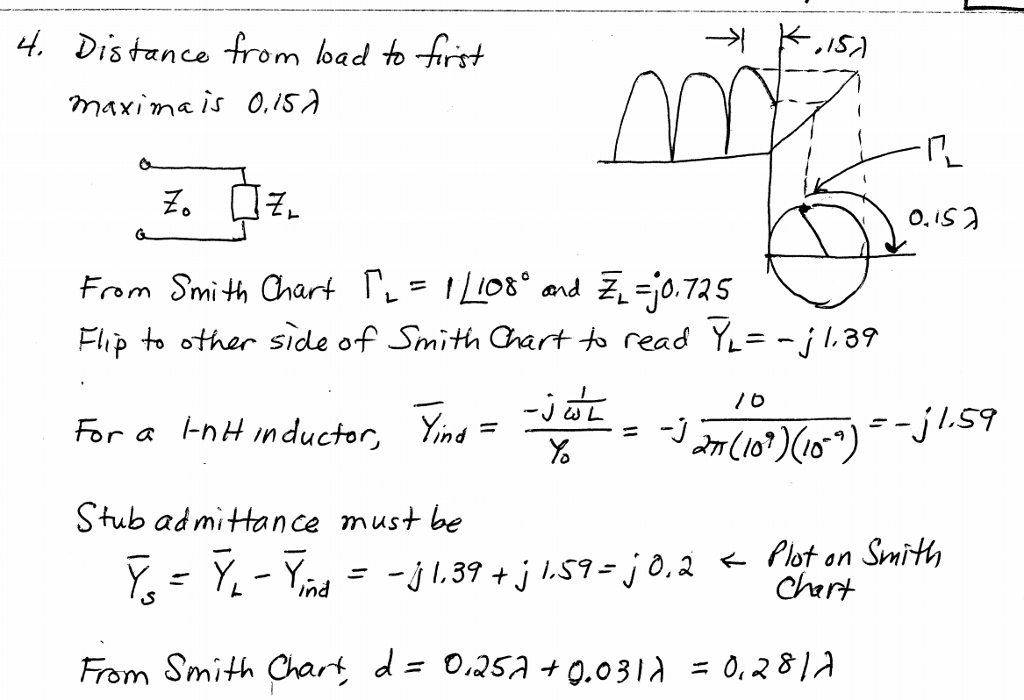 4. Distance from load to first
maxima is 0.15λ
.15λ
Γ_L
0.15λ
Z₀ Z_L
From Smith Chart Γ_L = 1∠108° and Z̄_L = j0.725
Flip to other side of Smith Chart to read Ȳ_L = -j1.39
For a 1-nH inductor, Ȳ_ind = (-j 1/ωL)/Y₀ = -j 10/(2π(10⁹)(10⁻⁹)) = -j1.59
Stub admittance must be
Ȳ_s = Ȳ_L - Ȳ_ind = -j1.39 + j1.59 = j0.2 ← Plot on Smith
Chart
From Smith Chart, d = 0.25λ + 0.031λ = 0.281λ